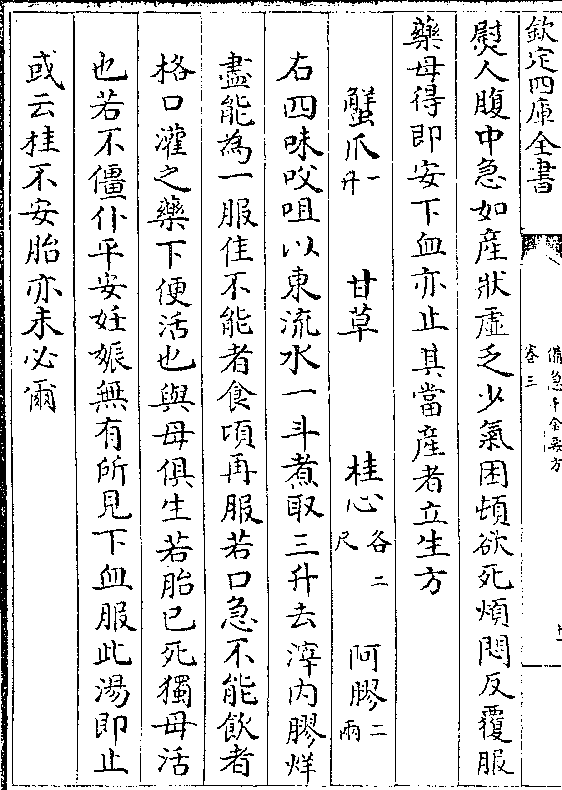 欽定四庫全書
備急千金要方
卷三
熨人腹中急如産狀虚乏少氣困頓欲死煩悶反覆服
藥母得即安下血亦止其當産者立生方
蟹爪一升 甘草 桂心各二尺 阿膠二兩
右四味㕮咀以東流水一斗煮取三升去滓内膠烊
盡能為一服佳不能者食頃再服若口急不能飲者
格口灌之藥下便活也與母俱生若胎已死獨母活
也若不僵仆平安妊娠無有所見下血服此湯即止
或云桂不安胎亦未必爾